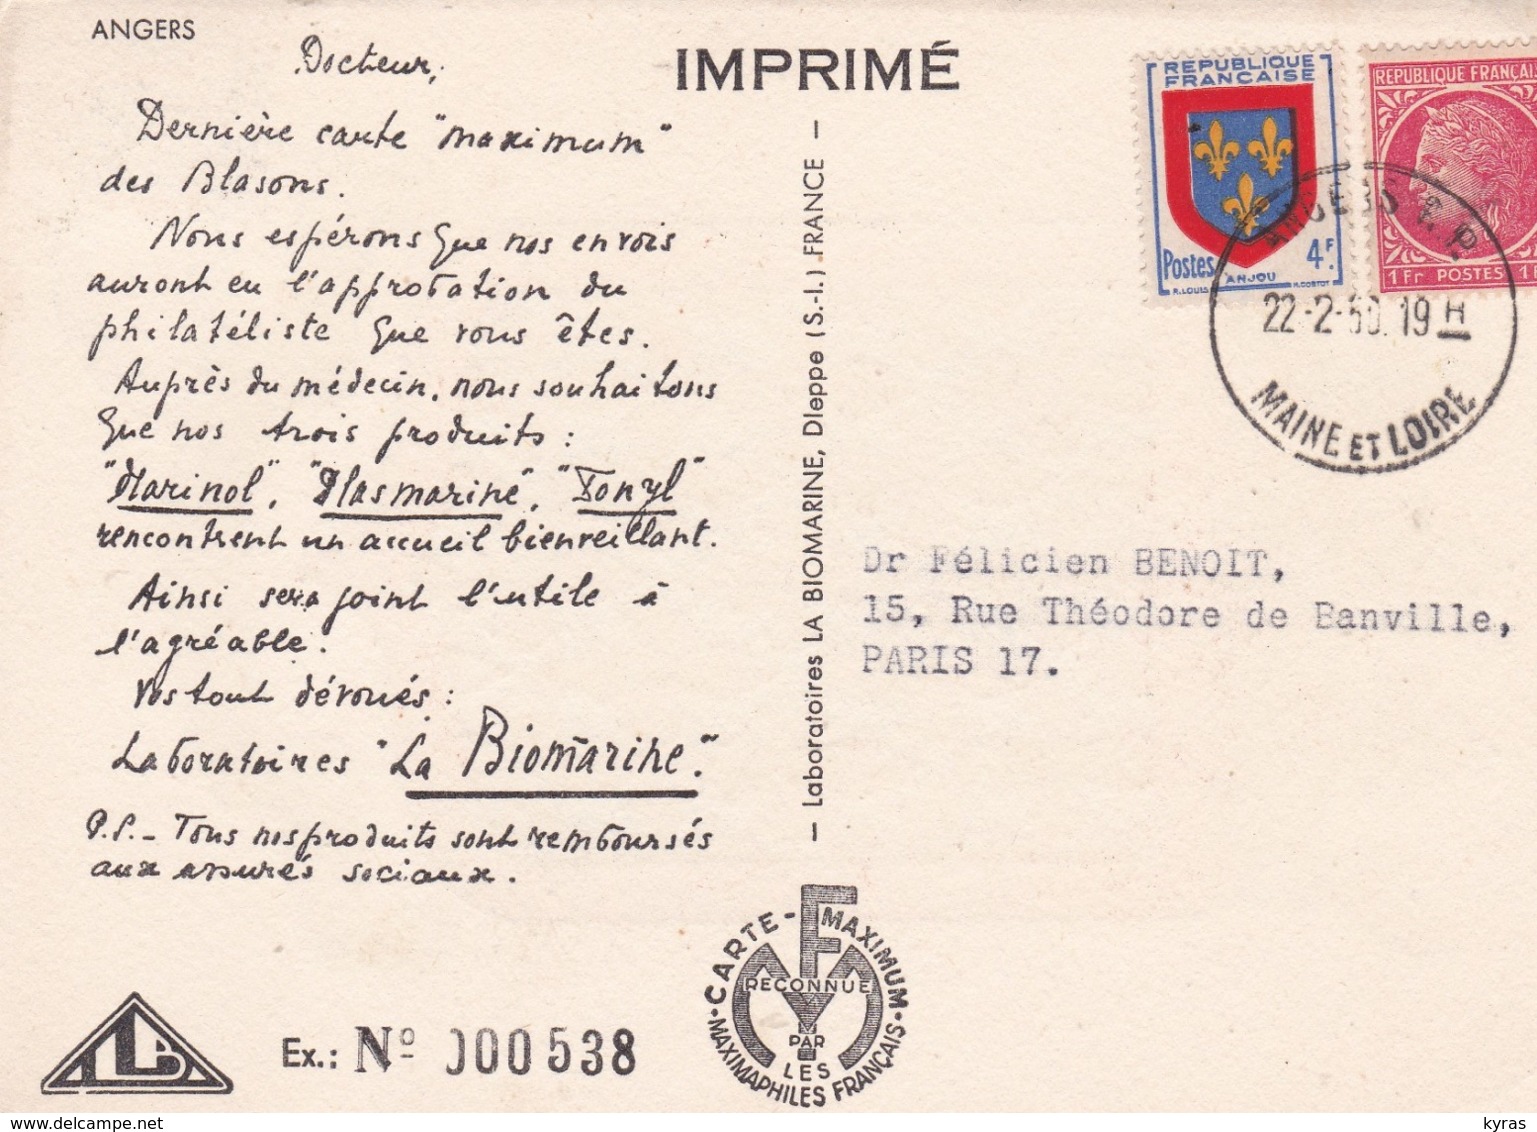 ANGERS
IMPRIMÉ
Docteur,
Dernière carte "maximum"
des Blasons.
Nous espérons que nos envois
auront eu l'approbation du
philatéliste que vous êtes.
Auprès du médecin, nous souhaitons
que nos trois produits :
"Marinol", "Plasmarine", "Ionyl"
rencontrent un accueil bienveillant.
Ainsi sera joint l'utile à
l'agréable.
Vos tout dévoués :
Laboratoires "La Biomarine."
P.S. - Tous nos produits sont remboursés
aux assurés sociaux.
Ex.: Nº 000538
— Laboratoires LA BIOMARINE, Dieppe (S.-I.) FRANCE —
CARTE-MAXIMUM
RECONNUE
PAR
LES
MAXIMAPHILES FRANÇAIS
F
LB
REPUBLIQUE
FRANÇAISE
Postes 4F.
ANJOU
R.LOUIS
H.CORTOT
REPUBLIQUE FRANÇAIS
1Fr POSTES 1
ANGERS R.P.
22-2-50. 19H
MAINE ET LOIRE
Dr Félicien BENOIT,
15, Rue Théodore de Banville,
PARIS 17.
kyras